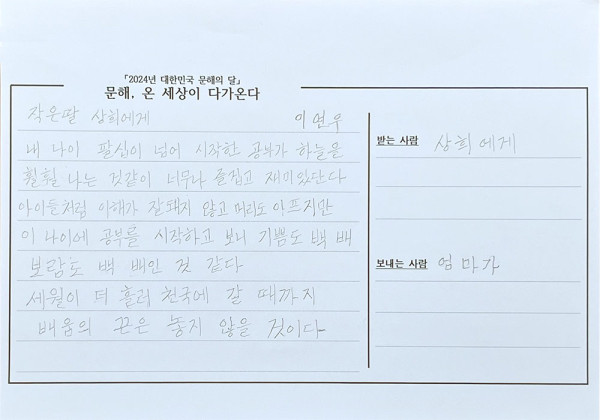 「2024년 대한민국 문해의 달」
문해, 온 세상이 다가온다
작은딸 상희에게 이연우
내 나이 팔십이 넘어 시작한 공부가 하늘을
훨훨 나는 것같이 너무나 즐겁고 재미있단다
아이들처럼 이해가 잘돼지 않고 머리도 아프지만
이 나이에 공부를 시작하고 보니 기쁨도 백 배
보람도 백 배인 것 같다
세월이 더 흘러 천국에 갈 때까지
배움의 끈은 놓지 않을 것이다
받는 사람 상희에게
보내는 사람 엄마가